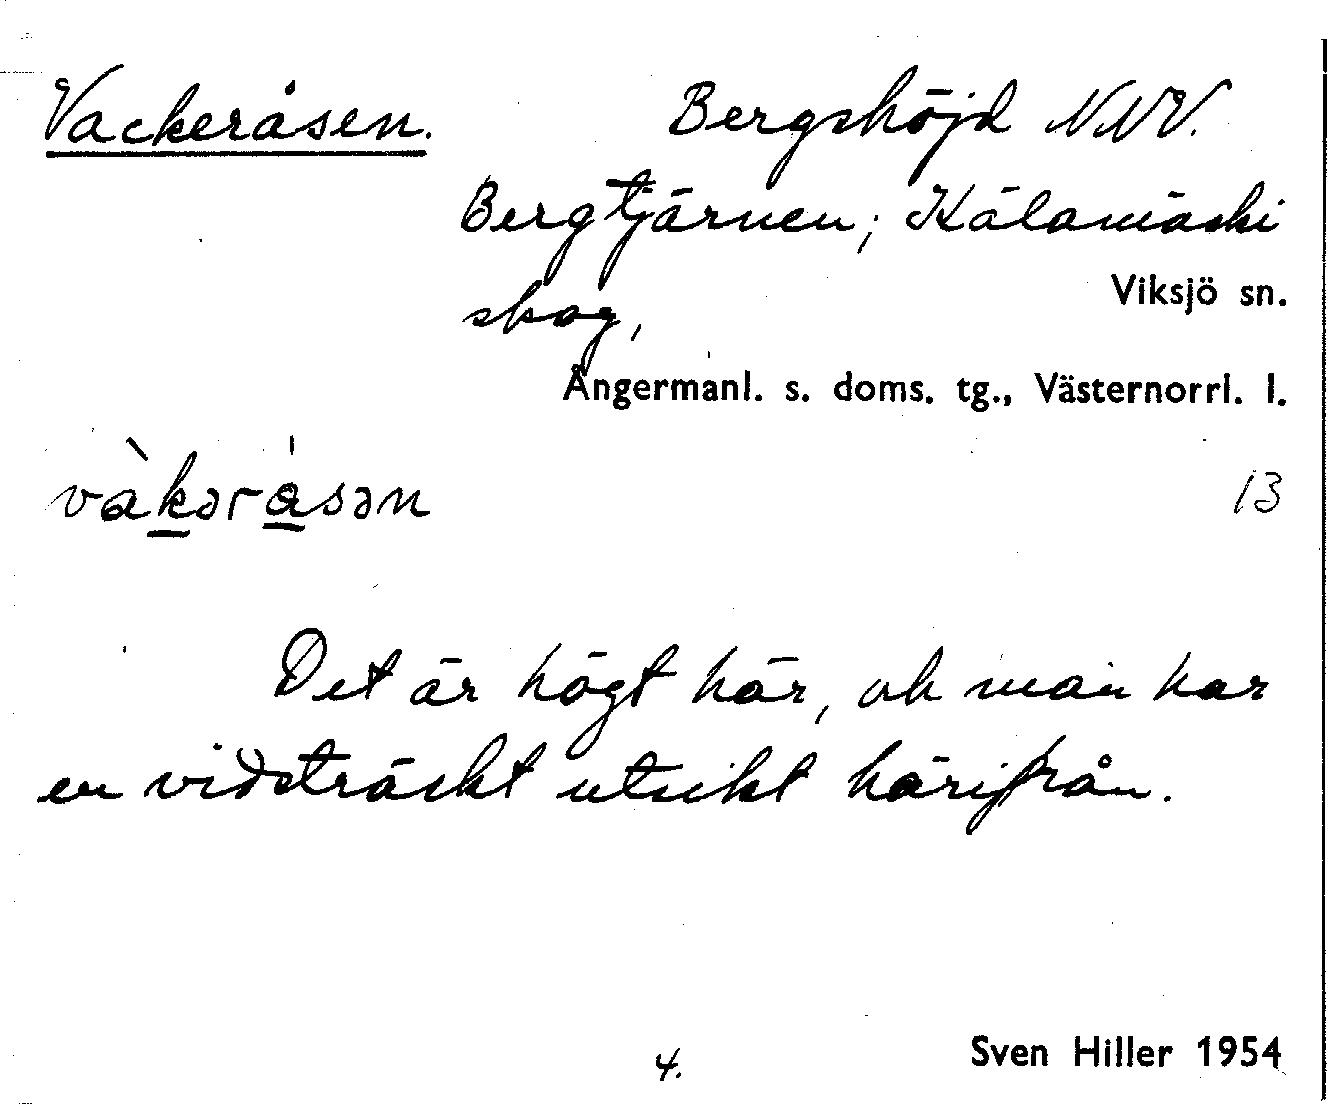 Vackeråsen. Bergshöjd NNV.
Bergtjärnen; Kälamäski
skog,
Viksjö sn.
Ångermanl. s. doms. tg., Västernorrl. l.
vàkəråsən 13
Det är högt här, och man har
en vidsträckt utsikt härifrån.
4. Sven Hiller 1954